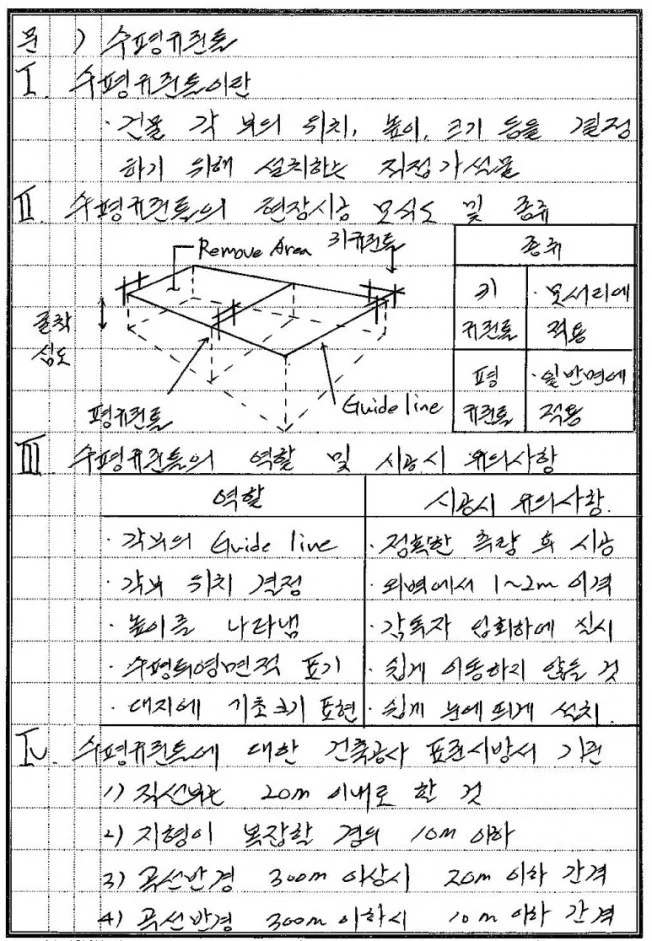 문 ) 수평규준틀
I. 수평규준틀이란
· 건물 각 부의 위치, 높이, 크기 등을 결정
하기 위해 설치하는 직접가설물
II. 수평규준틀의 현장시공 모식도 및 종류
Remove Area
귀규준틀
굴착
심도
평규준틀
Guide line
종류
귀
규준틀
· 모서리에
적용
평
규준틀
· 일반면에
적용
III. 수평규준틀의 역할 및 시공시 유의사항
역할
시공시 유의사항.
· 각부의 Guide line
· 정확한 측량 후 시공
· 각부 위치 결정
· 외벽에서 1~2m 이격
· 높이를 나타냄
· 감독자 입회하에 실시
· 수평투영면적 표기
· 쉽게 이동하지 않을 것
· 대지에 기초크기 표현
· 쉽게 눈에 띄게 설치.
IV. 수평규준틀에 대한 건축공사 표준시방서 기준
1) 직선부는 20m 이내로 할 것
2) 지형이 복잡할 경우 10m 이하
3) 곡선반경 300m 이상시 20m 이하 간격
4) 곡선반경 300m 이하시 10m 이하 간격